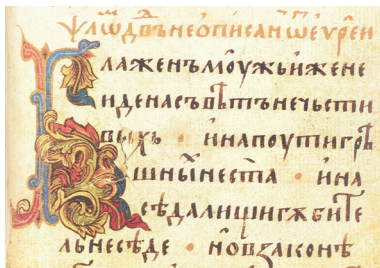 ѰЛѠ ДВЪ НЕѠПИСАН ѾЕѴРЕИ
Блаженъ моужь иже не
иде на съвѣтъ нечьсти
выхь · и на поути грѣ
шныⷯ не ста · и на
сѣдалищи гѫбите
ль не сѣде · нѡ в законѣ